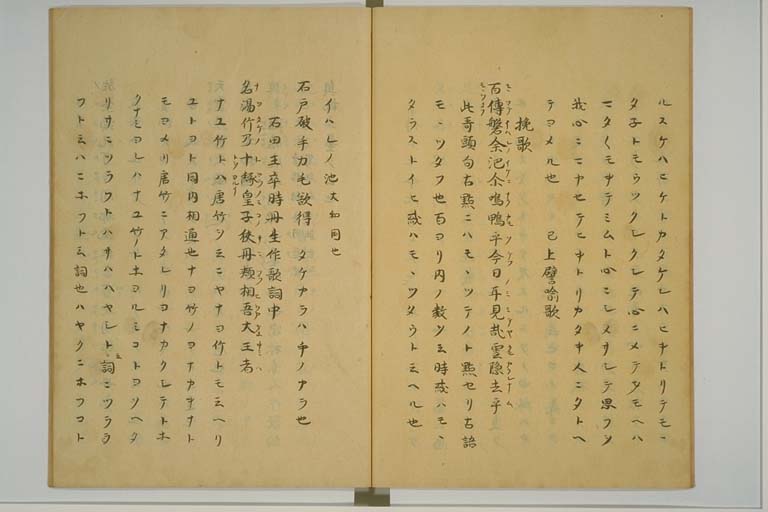 ルスケハヒケトカタケレハヒキトリテモヽ
タ子トモウツクシクシテ心ニメテタモヘハ
ニタ〱モサテミムト心ニシメサシテ思フソ
我心ニニヤセテヒキトリカタキ人ニタトヘ
テヨメル也 已上譬喩歌
挽歌
百傳磐余池尒鳴鴨乎今日耳見哉雲隠去乎
此哥頭句古點ニハモヽツテノト點セリ古語
モヽツタフ也百ヨリ内ノ数ヲ云時或ハモヽ
タラストイヒ或ハモヽツタウト云ヘル也
イハレノ池大和国也
石戸破手力毛欲得 タケカラハ手ノチカラ也
石田王卒時丹生作歌詞中
名湯竹乃十縁皇子狭丹頬相吾大王者
ナユ竹トハ唐竹シミニヤナヨ竹トモ云ヘリ
ユトヨト同内相通也ナヨ竹ノヨナカキナト
モヨメリ唐竹ニアタレリヨナカクシテトホ
クナミヨレハナユ竹ノトホヨルミコトヨソヘタ
リサニツラフトハサハハヤシト云詞ニツララ
フト云ハニホフト云詞也ハヤクニホフコト